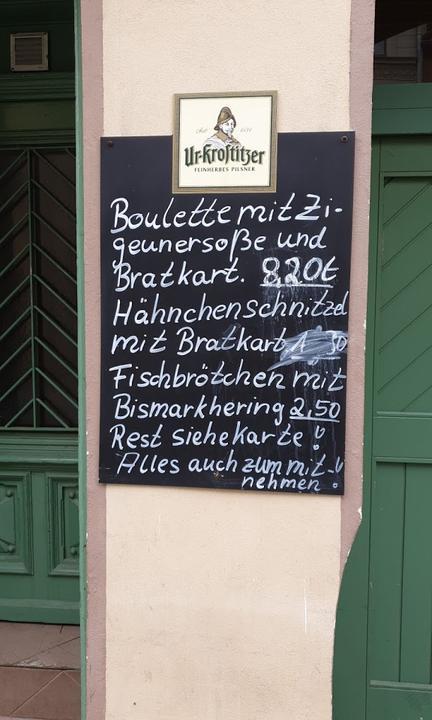 Ur-Krostitzer
FEINHERBES PILSNER
Boulette mit Zi-
geunersoße und
Bratkart. 8,20€
Hähnchenschnitzel
mit Bratkart.
Fischbrötchen mit
Bismarkhering 2,50
Rest siehe Karte!
Alles auch zum mit-
nehmen!